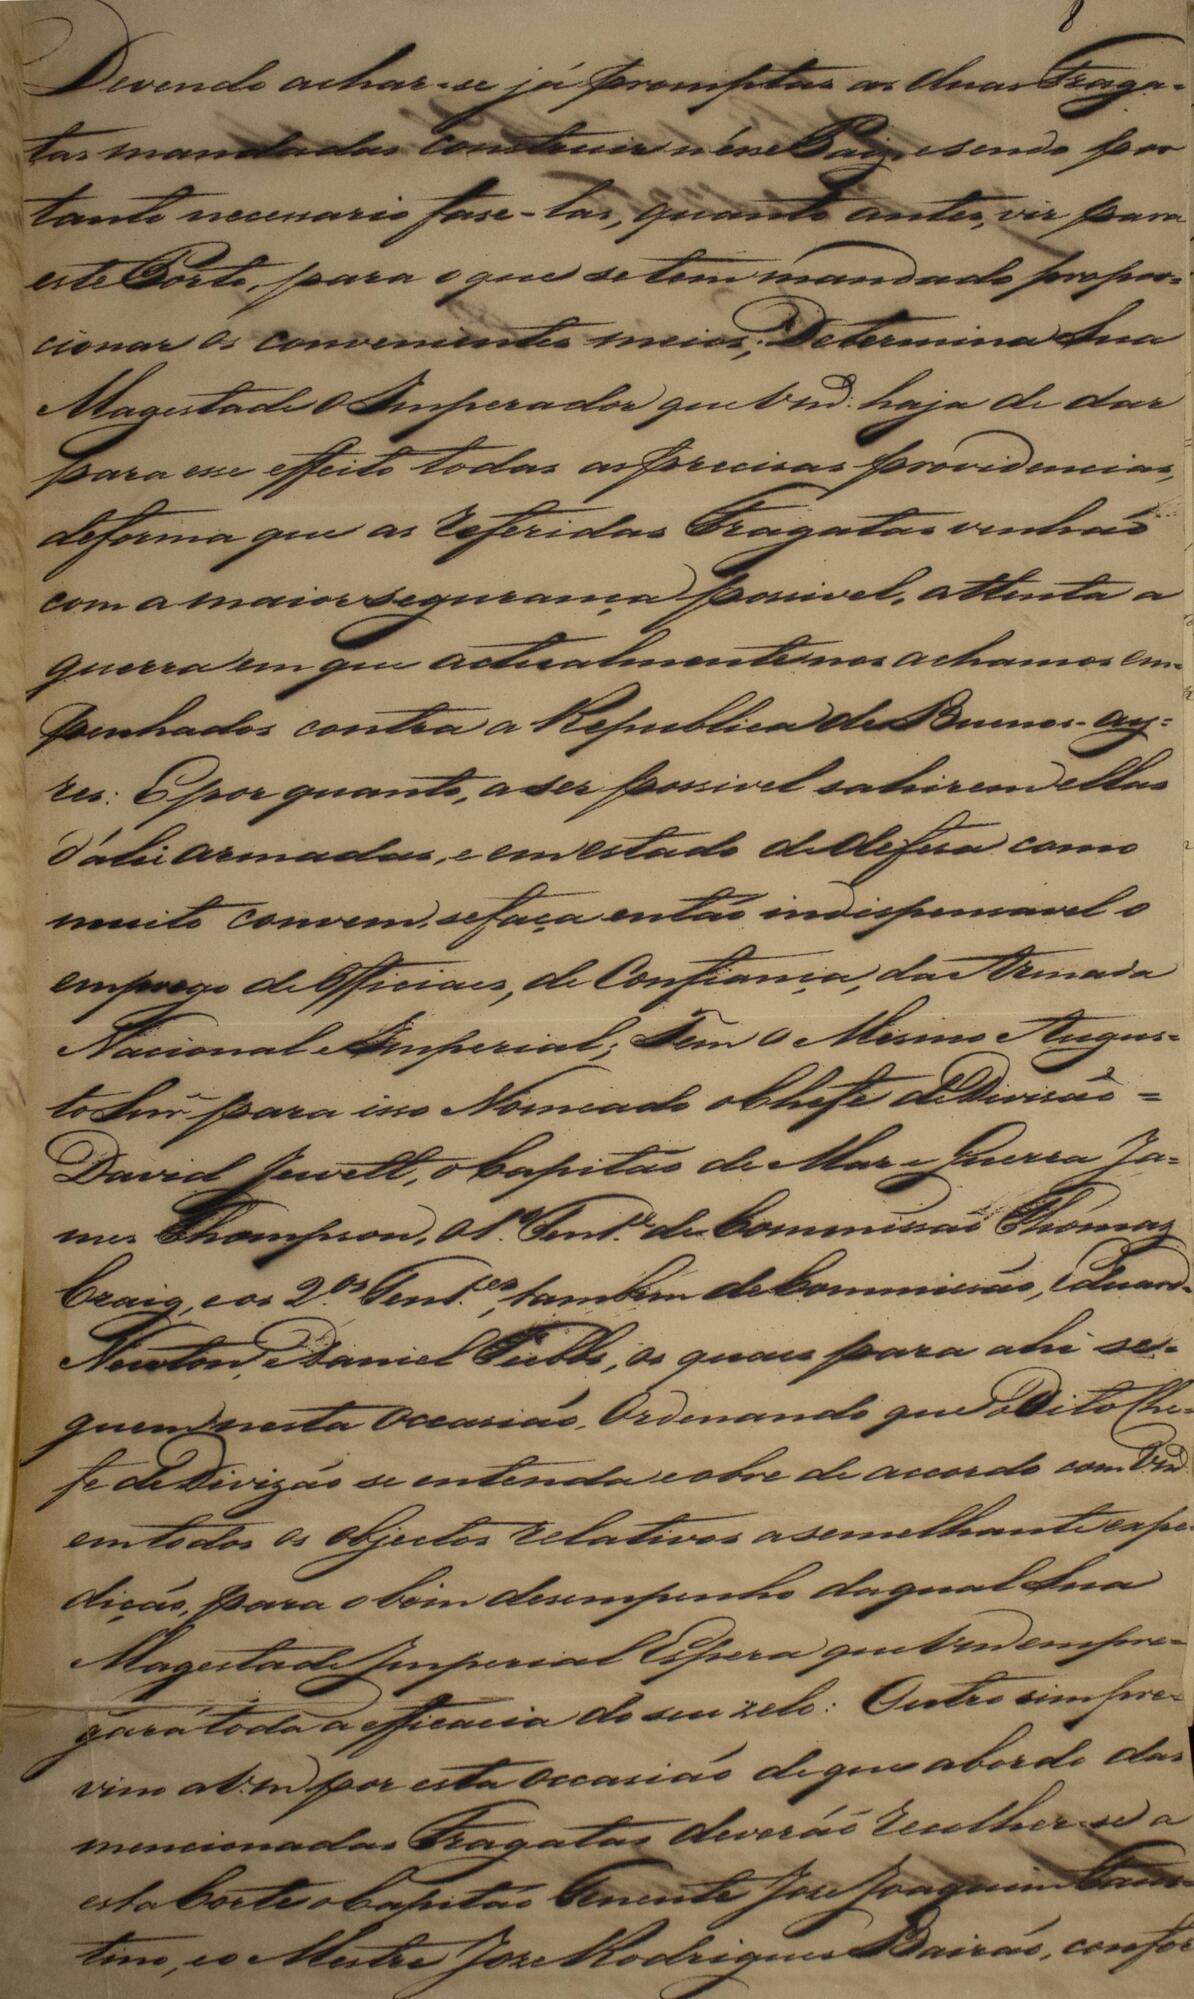 8
Devendo achar-se já promptas as duas Fraga-
tas mandadas construir n'ésse Paiz, e sendo por
tanto necessario fase-las, quanto antes, vir para
este Porto, para o que se tem mandado propor-
cionar os convenientes meios; Determina Sua
Magestade O Imperador que Vmce. haja de dar
para esse effeito todas as precisas providencias,
de forma que as referidas Fragatas venhaõ
com a maior segurança possivel, attenta a
guerra em que actualmente nos achamos em-
penhados contra a Republica de Buenos-ay=
res: E por quanto, a ser possivel sahirem ellas
d'ahi armadas, e em estado de defesa como
muito convem, se faça então indispensavel o
emprego de Officiaes, de Confiança, da Armada
Nacional e Imperial; Tem O Mesmo Augus-
to Snr. para isso Nomeado o Chefe de Divisaõ =
David Jewett, o Capitão de Mar e Guerra Ja=
mes Thompson, o 1º. Tente. de Commissaõ Thomaz
Craig, e os 2.os Tentes., tambem de Commissão, Eduard-
Newton, e Daniel Tubbs, os quaes para ahi se-
guem nesta occasião, Ordenando que o Dito Che-
fe de Divizão se entenda e obre de accordo com Vmce.
em todos os objectos relativos a semelhante expe-
dição, para o bom desempenho da qual Sua
Magestade Imperial Espera que Vmce empre-
gará toda a efficacia do seu zelo: Outro sim pre-
vino a Vmce por esta occasião de que a bordo das
mencionadas Fragatas deverão recolher-se a
esta Corte o Capitão Tenente Joze Joaquim Faus-
tino, e o Mestre Joze Rodrigues Bairão, confor